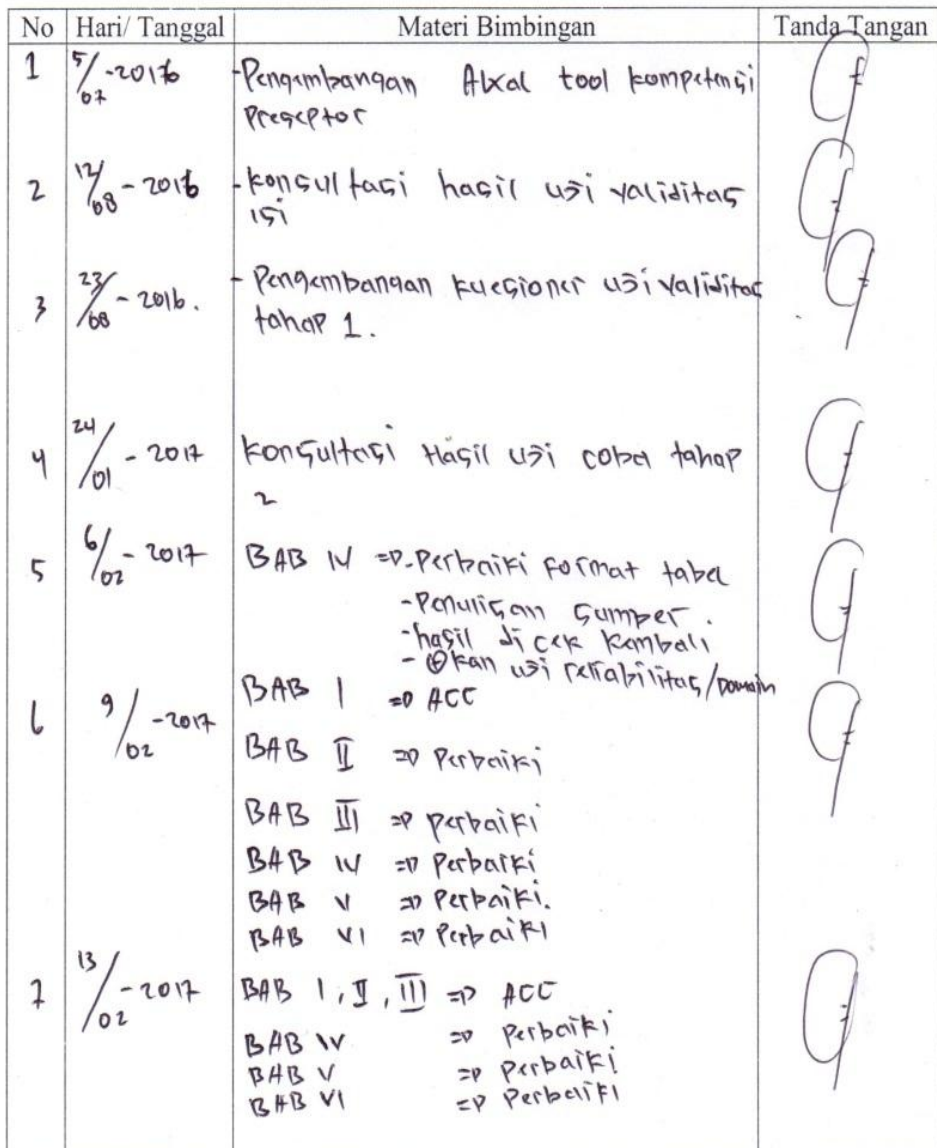 No Hari/ Tanggal Materi Bimbingan Tanda Tangan
1 5/07 -2016 -Pengembangan Alxal tool kompetensi
Preseptor
2 12/08 - 2016 -konsultasi hasil uji validitas
isi
3 23/08 - 2016. - Pengembangan kuesioner uji validitas
tahap 1.
4 24/01 - 2017 konsultasi Hasil uji coba tahap
2
5 6/02 - 2017 BAB IV => -Perbaiki format tabel
-Penulisan sumber.
-hasil di cek kembali
- kan uji reliabilitas/Domain
6 9/02 -2017 BAB I => ACC
BAB II => Perbaiki
BAB III => perbaiki
BAB IV => Perbaiki
BAB V => Perbaiki.
BAB VI => Perbaiki
7 13/02 -2017 BAB I, II, III => ACC
BAB IV => Perbaiki
BAB V => Perbaiki
BAB VI => Perbaiki